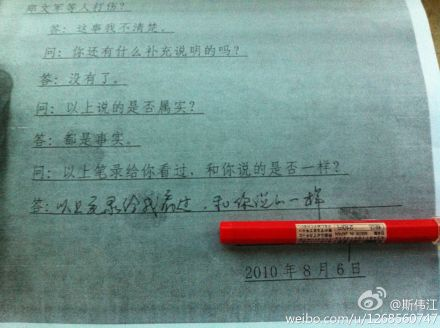 廖文军等人打伤？
答：这事我不清楚。
问：你还有什么补充说明的吗？
答：没有了。
问：以上说的是否属实？
答：都是事实。
问：以上笔录给你看过，和你说的是否一样？
答：以上笔录给我看过，和你说的一样
2010年8月6日
@斯伟江
weibo.com/u/1268560747